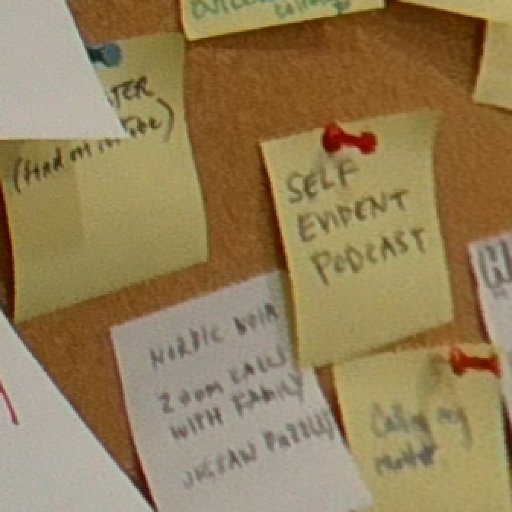 (find on
SELF
EVIDENT
PODCAST
NORDIC NOIR
ZOOM CALLS
WITH FAMILY
JIGSAW PUZZLES
Calling my
mother